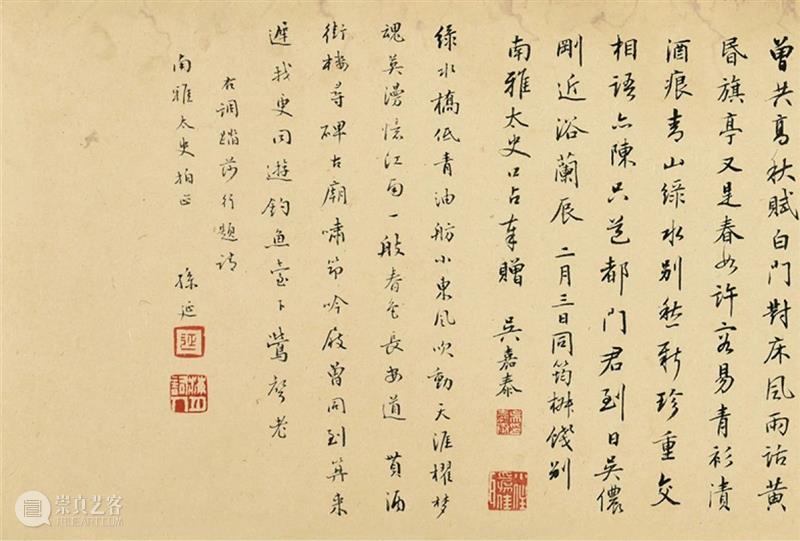 曾共高秋賦白門對床風雨話黃
昏旗亭又是春如許容易青衫漬
酒痕青山綠水別愁新珍重交
相語六陳只道都門君到日吳儂
剛近浴蘭辰 二月三日同筠樹餞別
南雅太史口占奉贈 吳嘉泰
綠水橋低青油舫小東風吹動天涯櫂梦
魂莫漫憶江南一般春色長安道 貰酒
街樓尋碑古廟嘯茆吟屐曾同到算來
遲我更同遊釣魚臺下鶯聲老
右調踏莎行題請
南雅太史拍正 孫延
崇真艺客